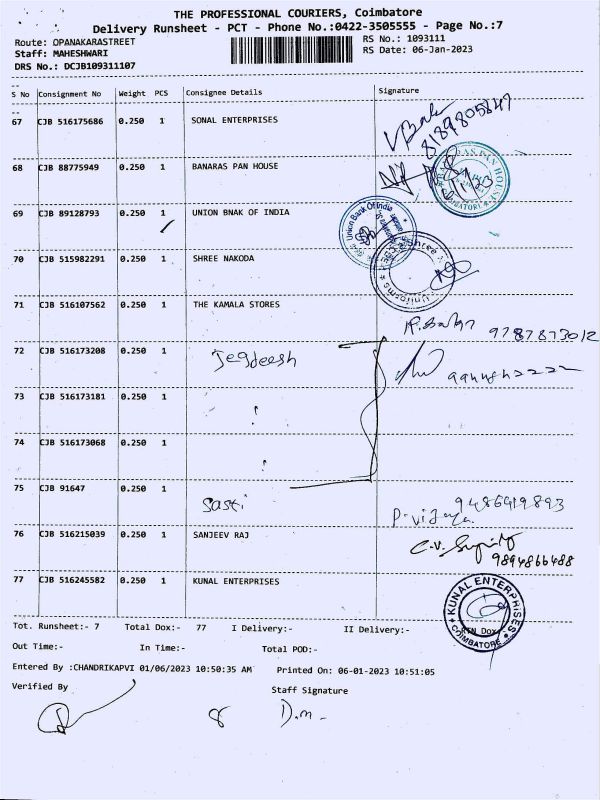 THE PROFESSIONAL COURIERS, Coimbatore
Delivery Runsheet - PCT - Phone No.:0422-3505555 - Page No.:7
Route: OPANAKARASTREET
RS No.: 1093111
Staff: MAHESHWARI
RS Date: 06-Jan-2023
DRS No.: DCJB109311107
S No Consignment No Weight PCS Consignee Details Signature
67 CJB 516175686 0.250 1 SONAL ENTERPRISES
68 CJB 88775949 0.250 1 BANARAS PAN HOUSE
69 CJB 89128793 0.250 1 UNION BNAK OF INDIA
Union Bank Of India
70 CJB 515982291 0.250 1 SHREE NAKODA
Shree
Uniforms
71 CJB 516107562 0.250 1 THE KAMALA STORES
9787873012
72 CJB 516173208 0.250 1 Jegdeesh
73 CJB 516173181 0.250 1
74 CJB 516173068 0.250 1
75 CJB 91647 0.250 1 Sasti
9486419893
76 CJB 516215039 0.250 1 SANJEEV RAJ
9894866488
77 CJB 516245582 0.250 1 KUNAL ENTERPRISES
KUNAL ENTERPRISES
COIMBATORE
Tot. Runsheet:- 7 Total Dox:- 77 I Delivery:- II Delivery:- RTN Dox
Out Time:- In Time:- Total POD:-
Entered By :CHANDRIKAPVI 01/06/2023 10:50:35 AM Printed On: 06-01-2023 10:51:05
Verified By Staff Signature
8 D.m.